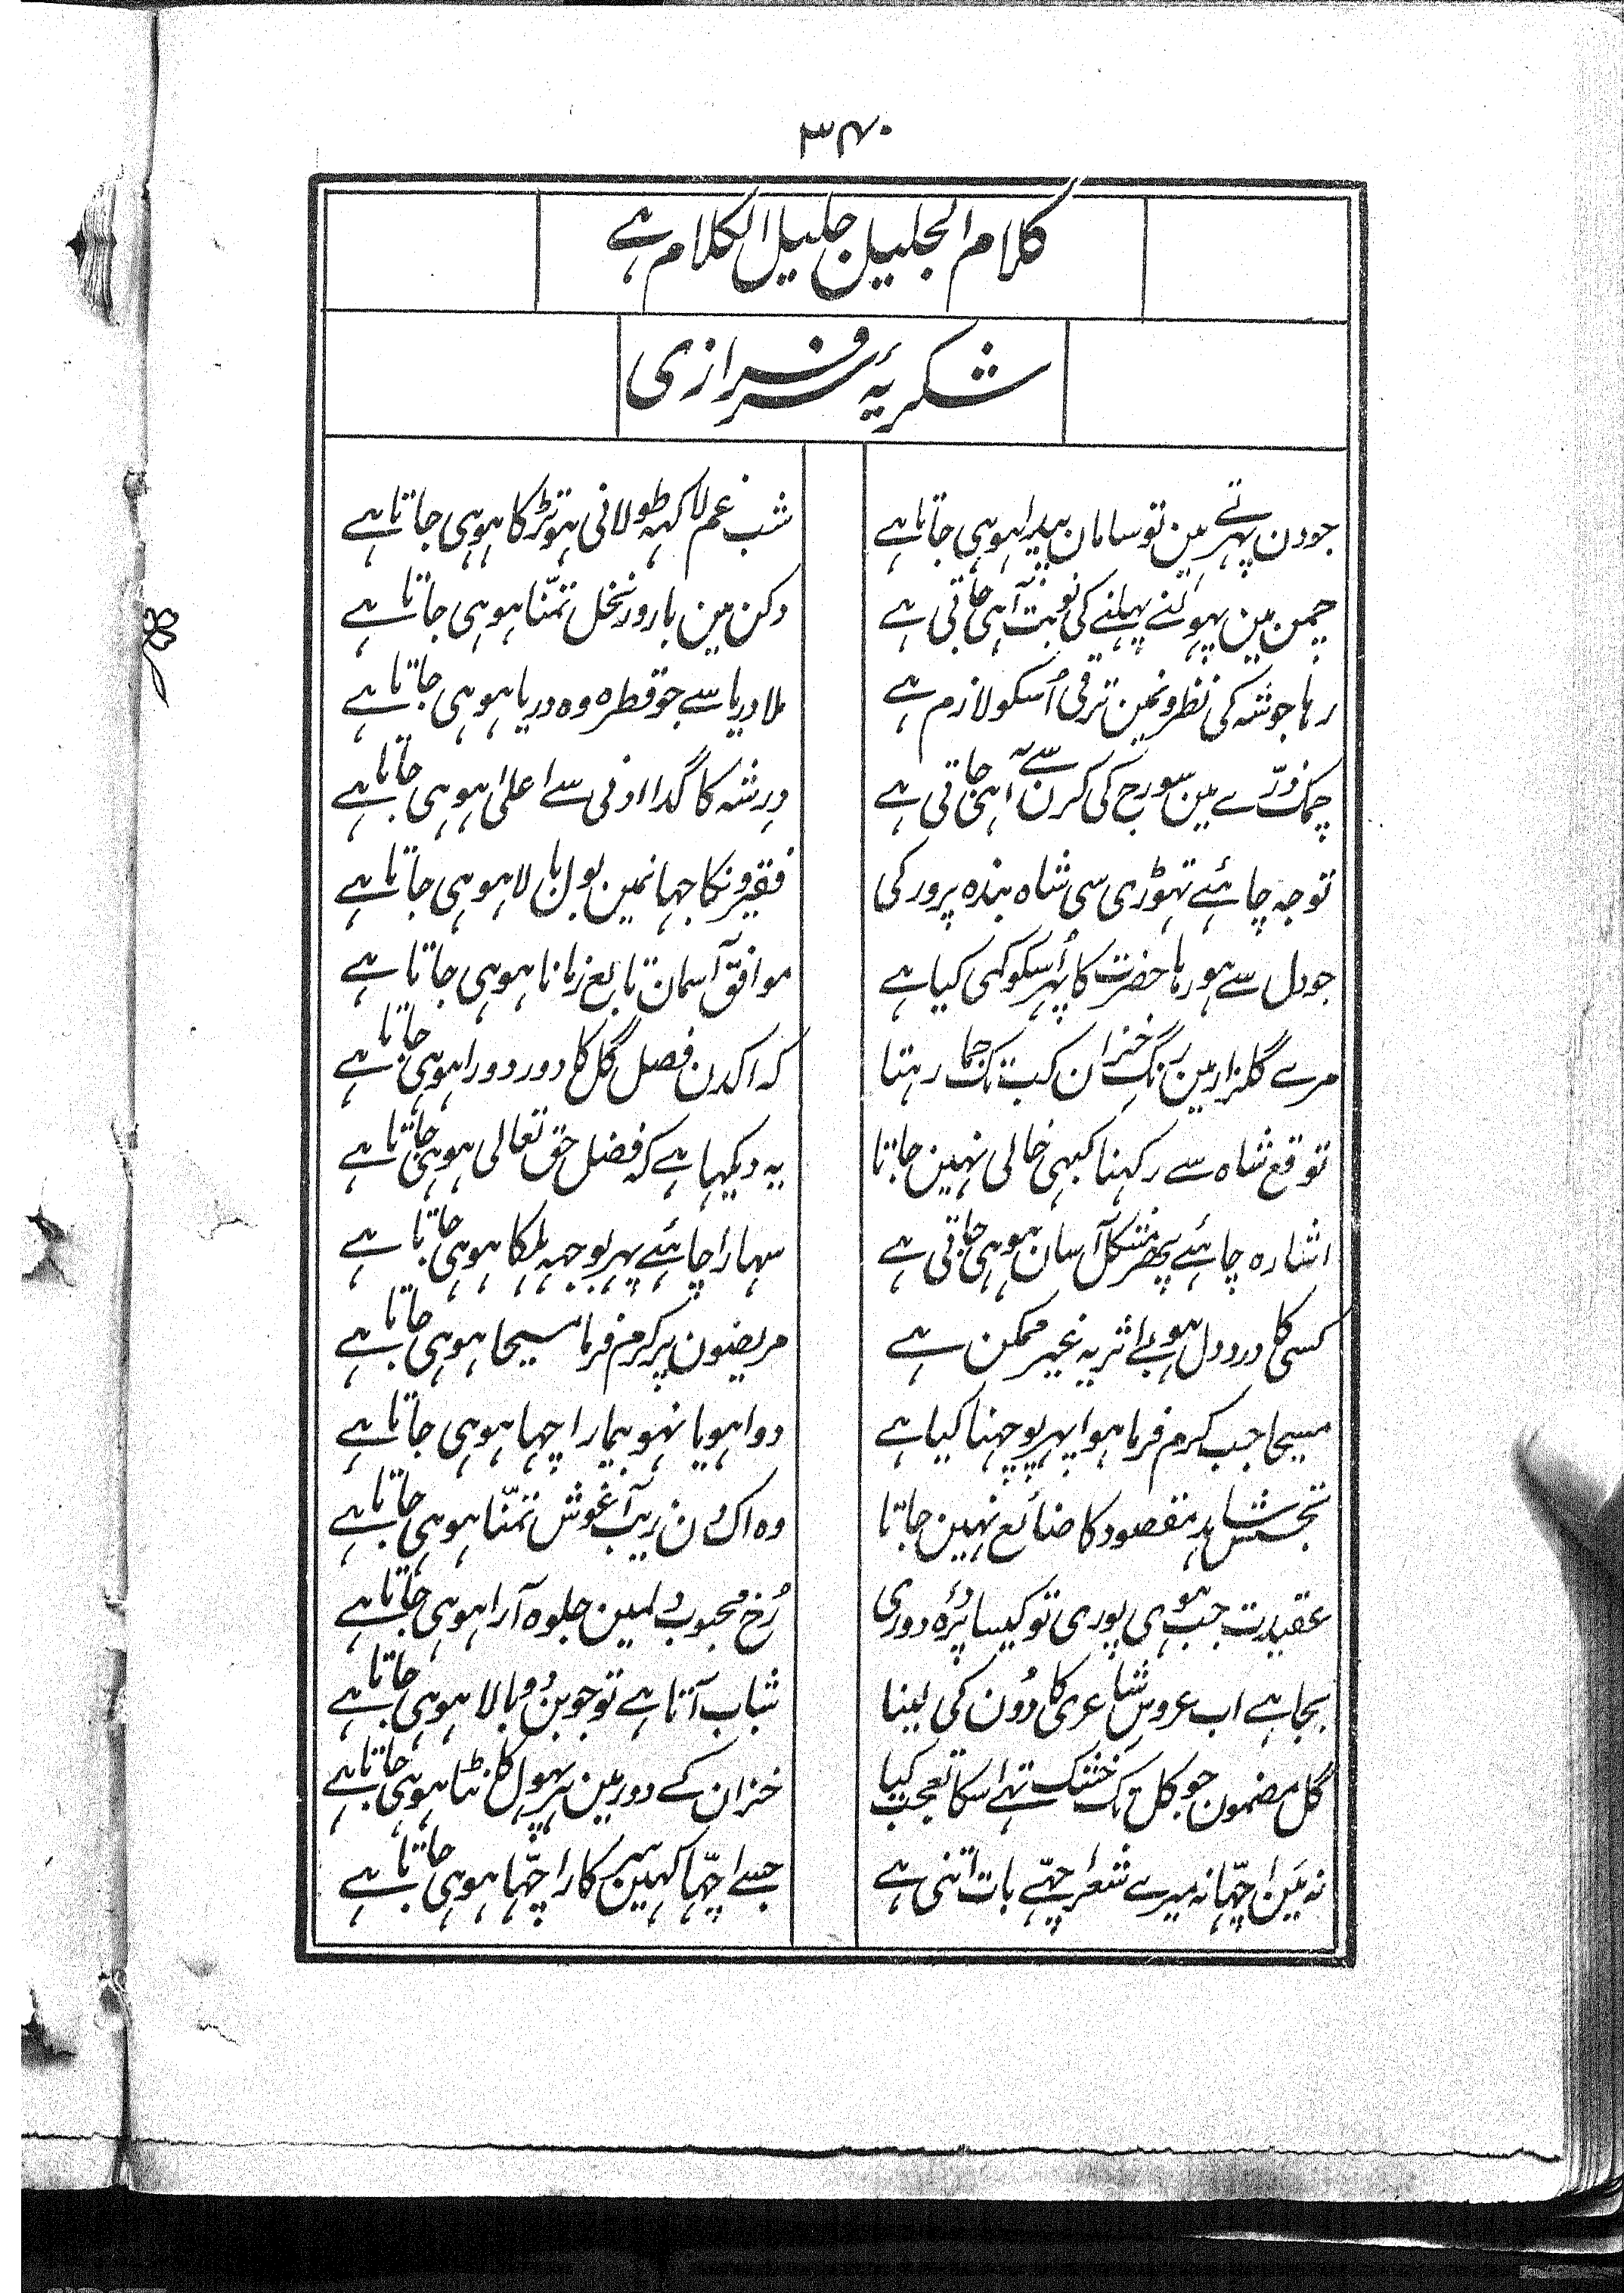 ۳۴۰
کلام الجلیل جلیل الکلام ہے
شکریۂ سرفرازی
جو دن پہرتے مین تو سامان پیدا ہو ہی جاتا ہے شب غم لاکہہ طولانی ہو تڑکا ہو ہی جاتا ہے
چمن مین پہولنے پہلنے کی نوبت آ ہی جاتی ہے دکن مین بارور نخل تمنّا ہو ہی جاتا ہے
رہا جو شہ کی نظرونمین ترقی اُسکو لازم ہے ملا دریا سے جو قطرہ وہ دریا ہو ہی جاتا ہے
چمک ذرّے مین سورج کی کرن سے آ ہی جاتی ہے در شہ کا گدا ادنی سے اعلیٰ ہو ہی جاتا ہے
توجہ چاہئے تہوڑی سی شاہ بندہ پرور کی فقیرونکا جہانمین بول بالا ہو ہی جاتا ہے
جو دل سے ہو رہا حضرت کا پہر اُسکو کمی کیا ہے موافق آسمان تابع زمانا ہو ہی جاتا ہے
مرے گلزار مین رنگ خزان کب تک جما رہتا کہ اکدن فصل گل کا دور دورا ہو ہی جاتا ہے
توقع شاہ سے رکہنا کبہی خالی نہین جاتا یہ دیکہا ہے کہ فضل حق تعالی ہو ہی جاتا ہے
اشارہ چاہئے پھر مشکل آسان ہو ہی جاتی ہے سہارا چاہئے پہر بوجہہ ہلکا ہو ہی جاتا ہے
کسی کا درد دل ہو بے اثر یہ غیر ممکن ہے مریضون پر کرم فرما مسیحا ہو ہی جاتا ہے
مسیحا جب کرم فرما ہوا پہر پوچہنا کیا ہے دوا ہو یا نہو بیمار اچہا ہو ہی جاتا ہے
تجسس شاہد مقصود کا ضائع نہین جاتا وہ اک دن زیب آغوش تمنّا ہو ہی جاتا ہے
عقیدت جب ہوی پوری تو کیسا پردۂ دوری رُخ محبوب دلمین جلوہ آرا ہو ہی جاتا ہے
بجا ہے اب عروس شاعری کا دُون کی لینا شباب آتا ہے تو جوبن دُوبالا ہو ہی جاتا ہے
گل مضمون جو کل تک خشک تہے اسکا تعجب کیا خزان کے دور مین ہر پہول کانٹا ہو ہی جاتا ہے
نہ مَین اچہّا نہ میرے شعر اچہّے بات اتنی ہے جسے اچہّا کہین سرکار اچہّا ہو ہی جاتا ہے